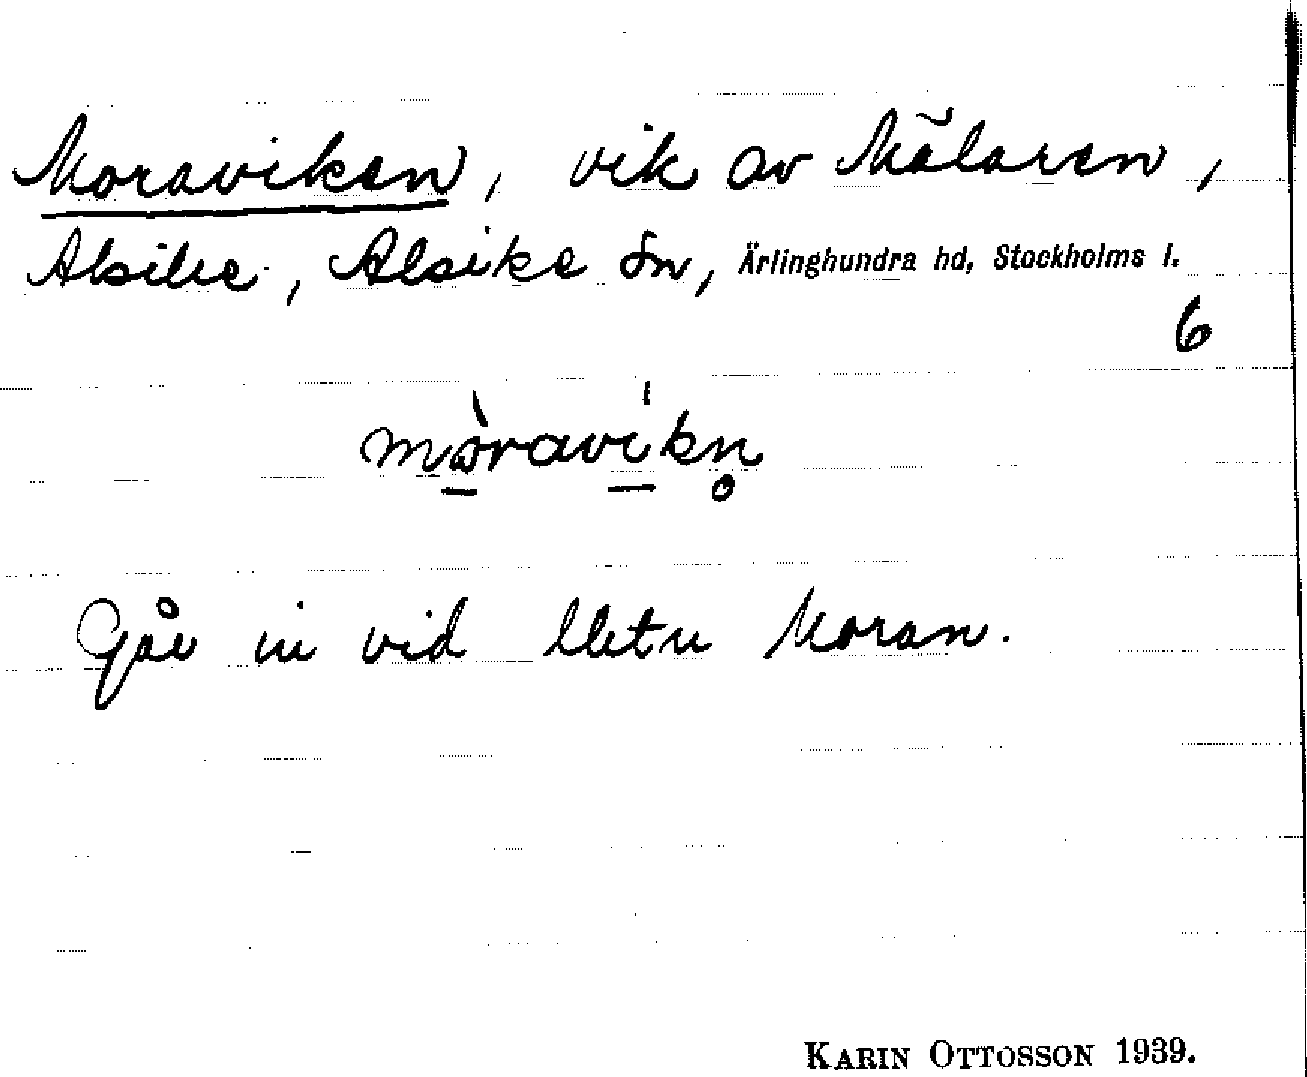 Moraviken, vik av Mälaren,
Alsike, Alsike sn, Ärlinghundra hd, Stockholms l.
6
mòravíkn̥
Går in vid Moran.
KARIN OTTOSSON 1939.